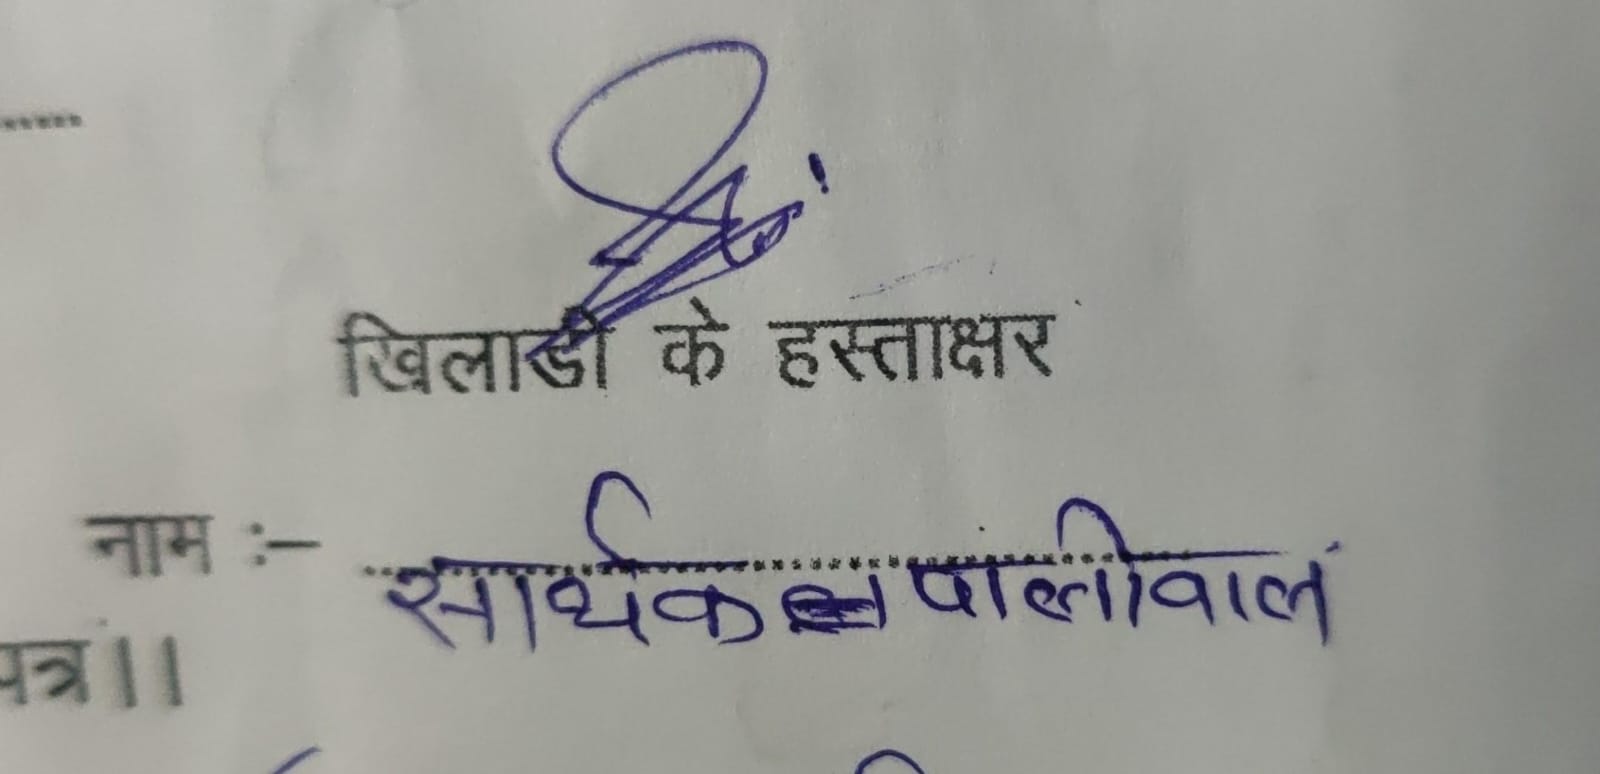 खिलाडी के हस्ताक्षर
नाम :- सार्थक पालीवाल
पत्र।।